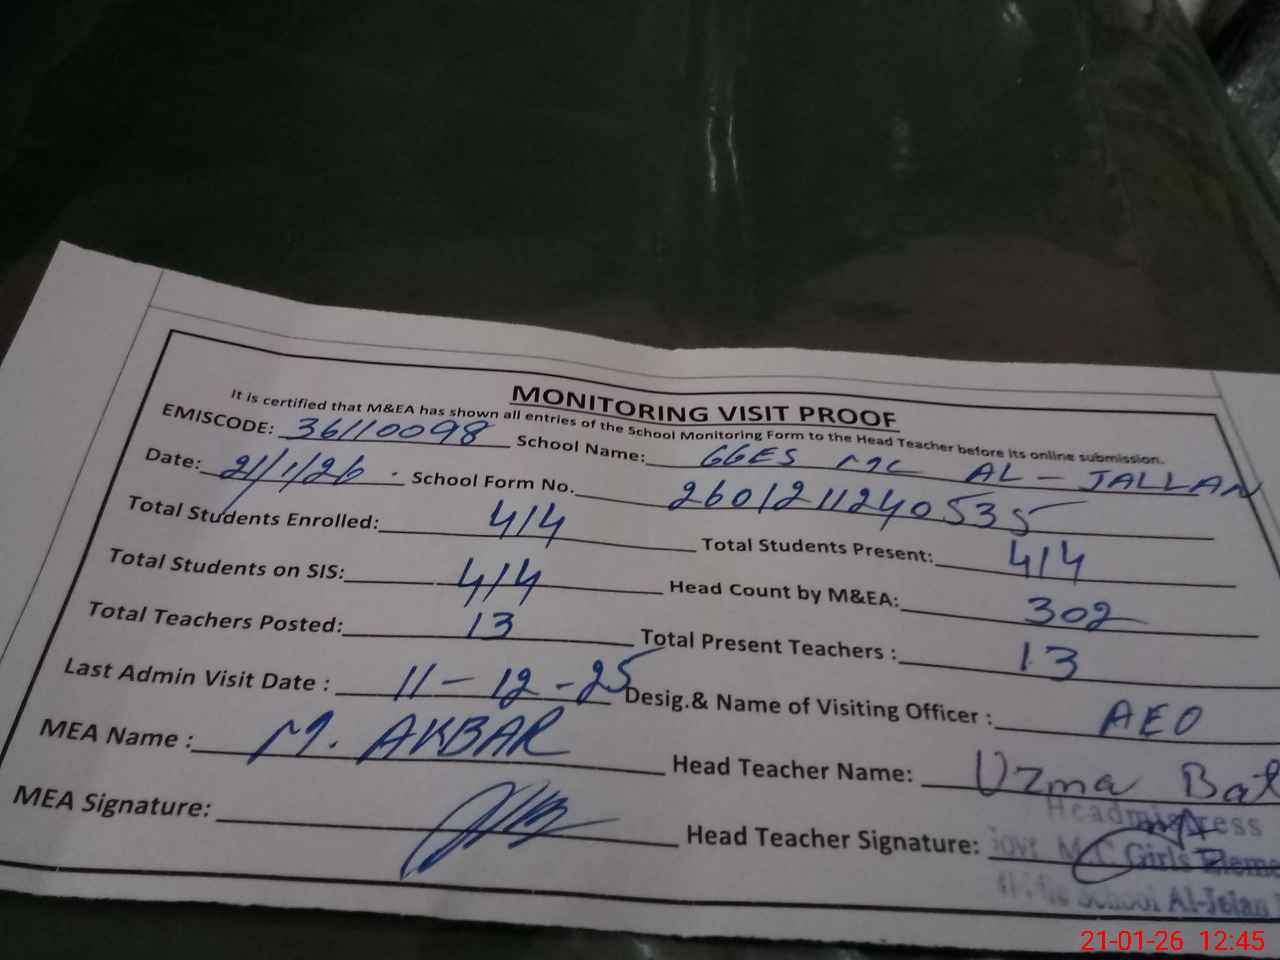 MONITORING VISIT PROOF
It is certified that M&EA has shown all entries of the School Monitoring Form to the Head Teacher before its online submission.
EMISCODE: 36110098 School Name: GGES MC AL - JALLAN
Date: 21/1/26 . School Form No. 2601211240535
Total Students Enrolled: 414 Total Students Present: 414
Total Students on SIS: 414 Head Count by M&EA: 302
Total Teachers Posted: 13 Total Present Teachers : 13
Last Admin Visit Date : 11 - 12 - 25 Desig.& Name of Visiting Officer : AEO
MEA Name : M. AKBAR Head Teacher Name: Uzma Bat
MEA Signature: Head Teacher Signature:
Headmistress
Govt. M.C Girls Eleme
School Al-Jelan
21-01-26 12:45